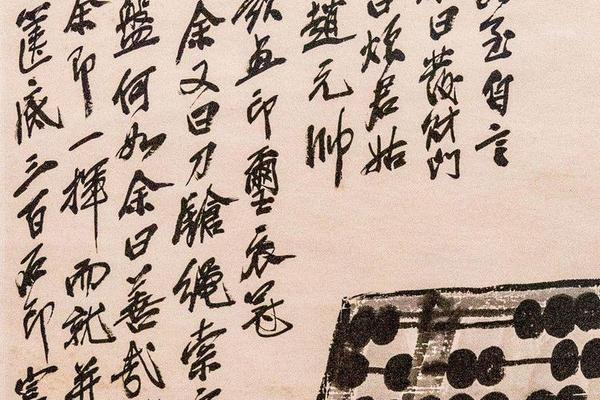 至自言
曰發財門
曰煩君姑
趙元帥
欲畫印璽衣冠
余又曰刀鎗繩索
盤何如余曰善哉
余即一揮而就并
篋底三百石印富